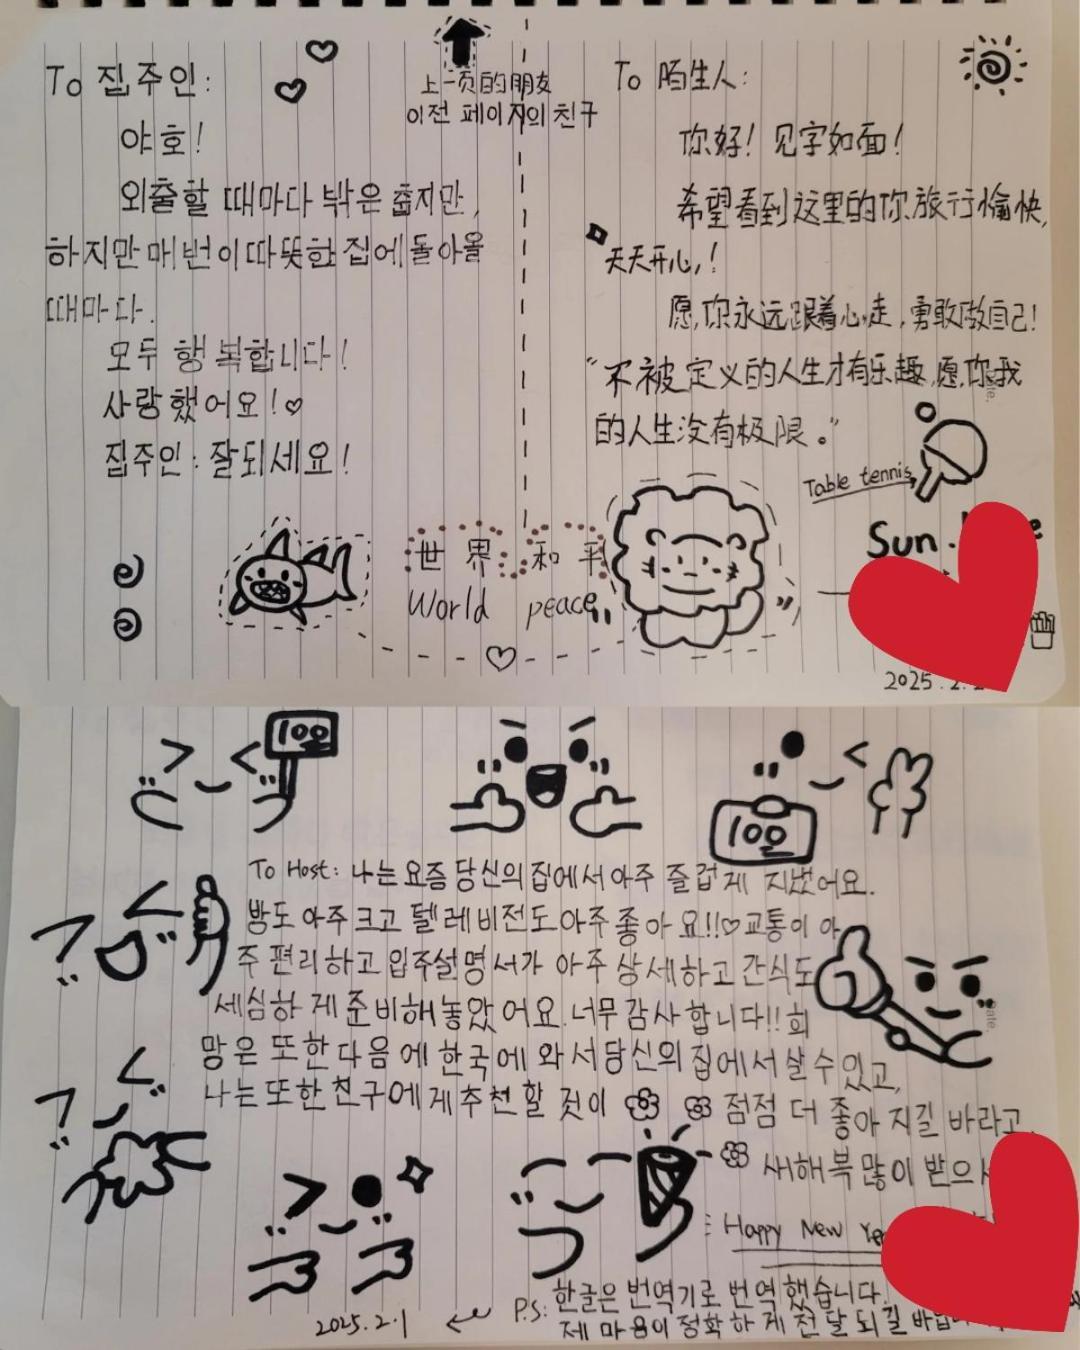 上一页的朋友
이전 페이지의 친구
To 집주인:
야호!
외출할 때마다 밖은 춥지만,
하지만 매번 이 따뜻한 집에 돌아올
때마다.
모두 행복합니다!
사랑했어요!
집주인: 잘되세요!
To 陌生人:
你好! 见字如面!
希望看到这里的你旅行愉快,
天天开心,!
愿,你永远跟着心走,勇敢做自己!
“不被定义的人生才有乐趣,愿,你我
的人生没有极限。”
Table tennis
Sun.
世界 和平
World peace
2025.2.
100
100
To Host: 나는 요즘 당신의 집에서 아주 즐겁게 지냈어요.
방도 아주 크고 텔레비전도 아주 좋아요!!♡교통이 아
주 편리하고 입주설명서가 아주 상세하고 간식도
세심하게 준비해놓았어요.너무 감사합니다!! 희
망은 또한 다음에 한국에 와서 당신의 집에서 살 수 있고,
나는 또한 친구에게 추천할 것이 점점 더 좋아지길 바라고
새해 복 많이 받으
Happy New
P.S: 한글은 번역기로 번역했습니다.
제 마음이 정확하게 전달되길
2025.2.1